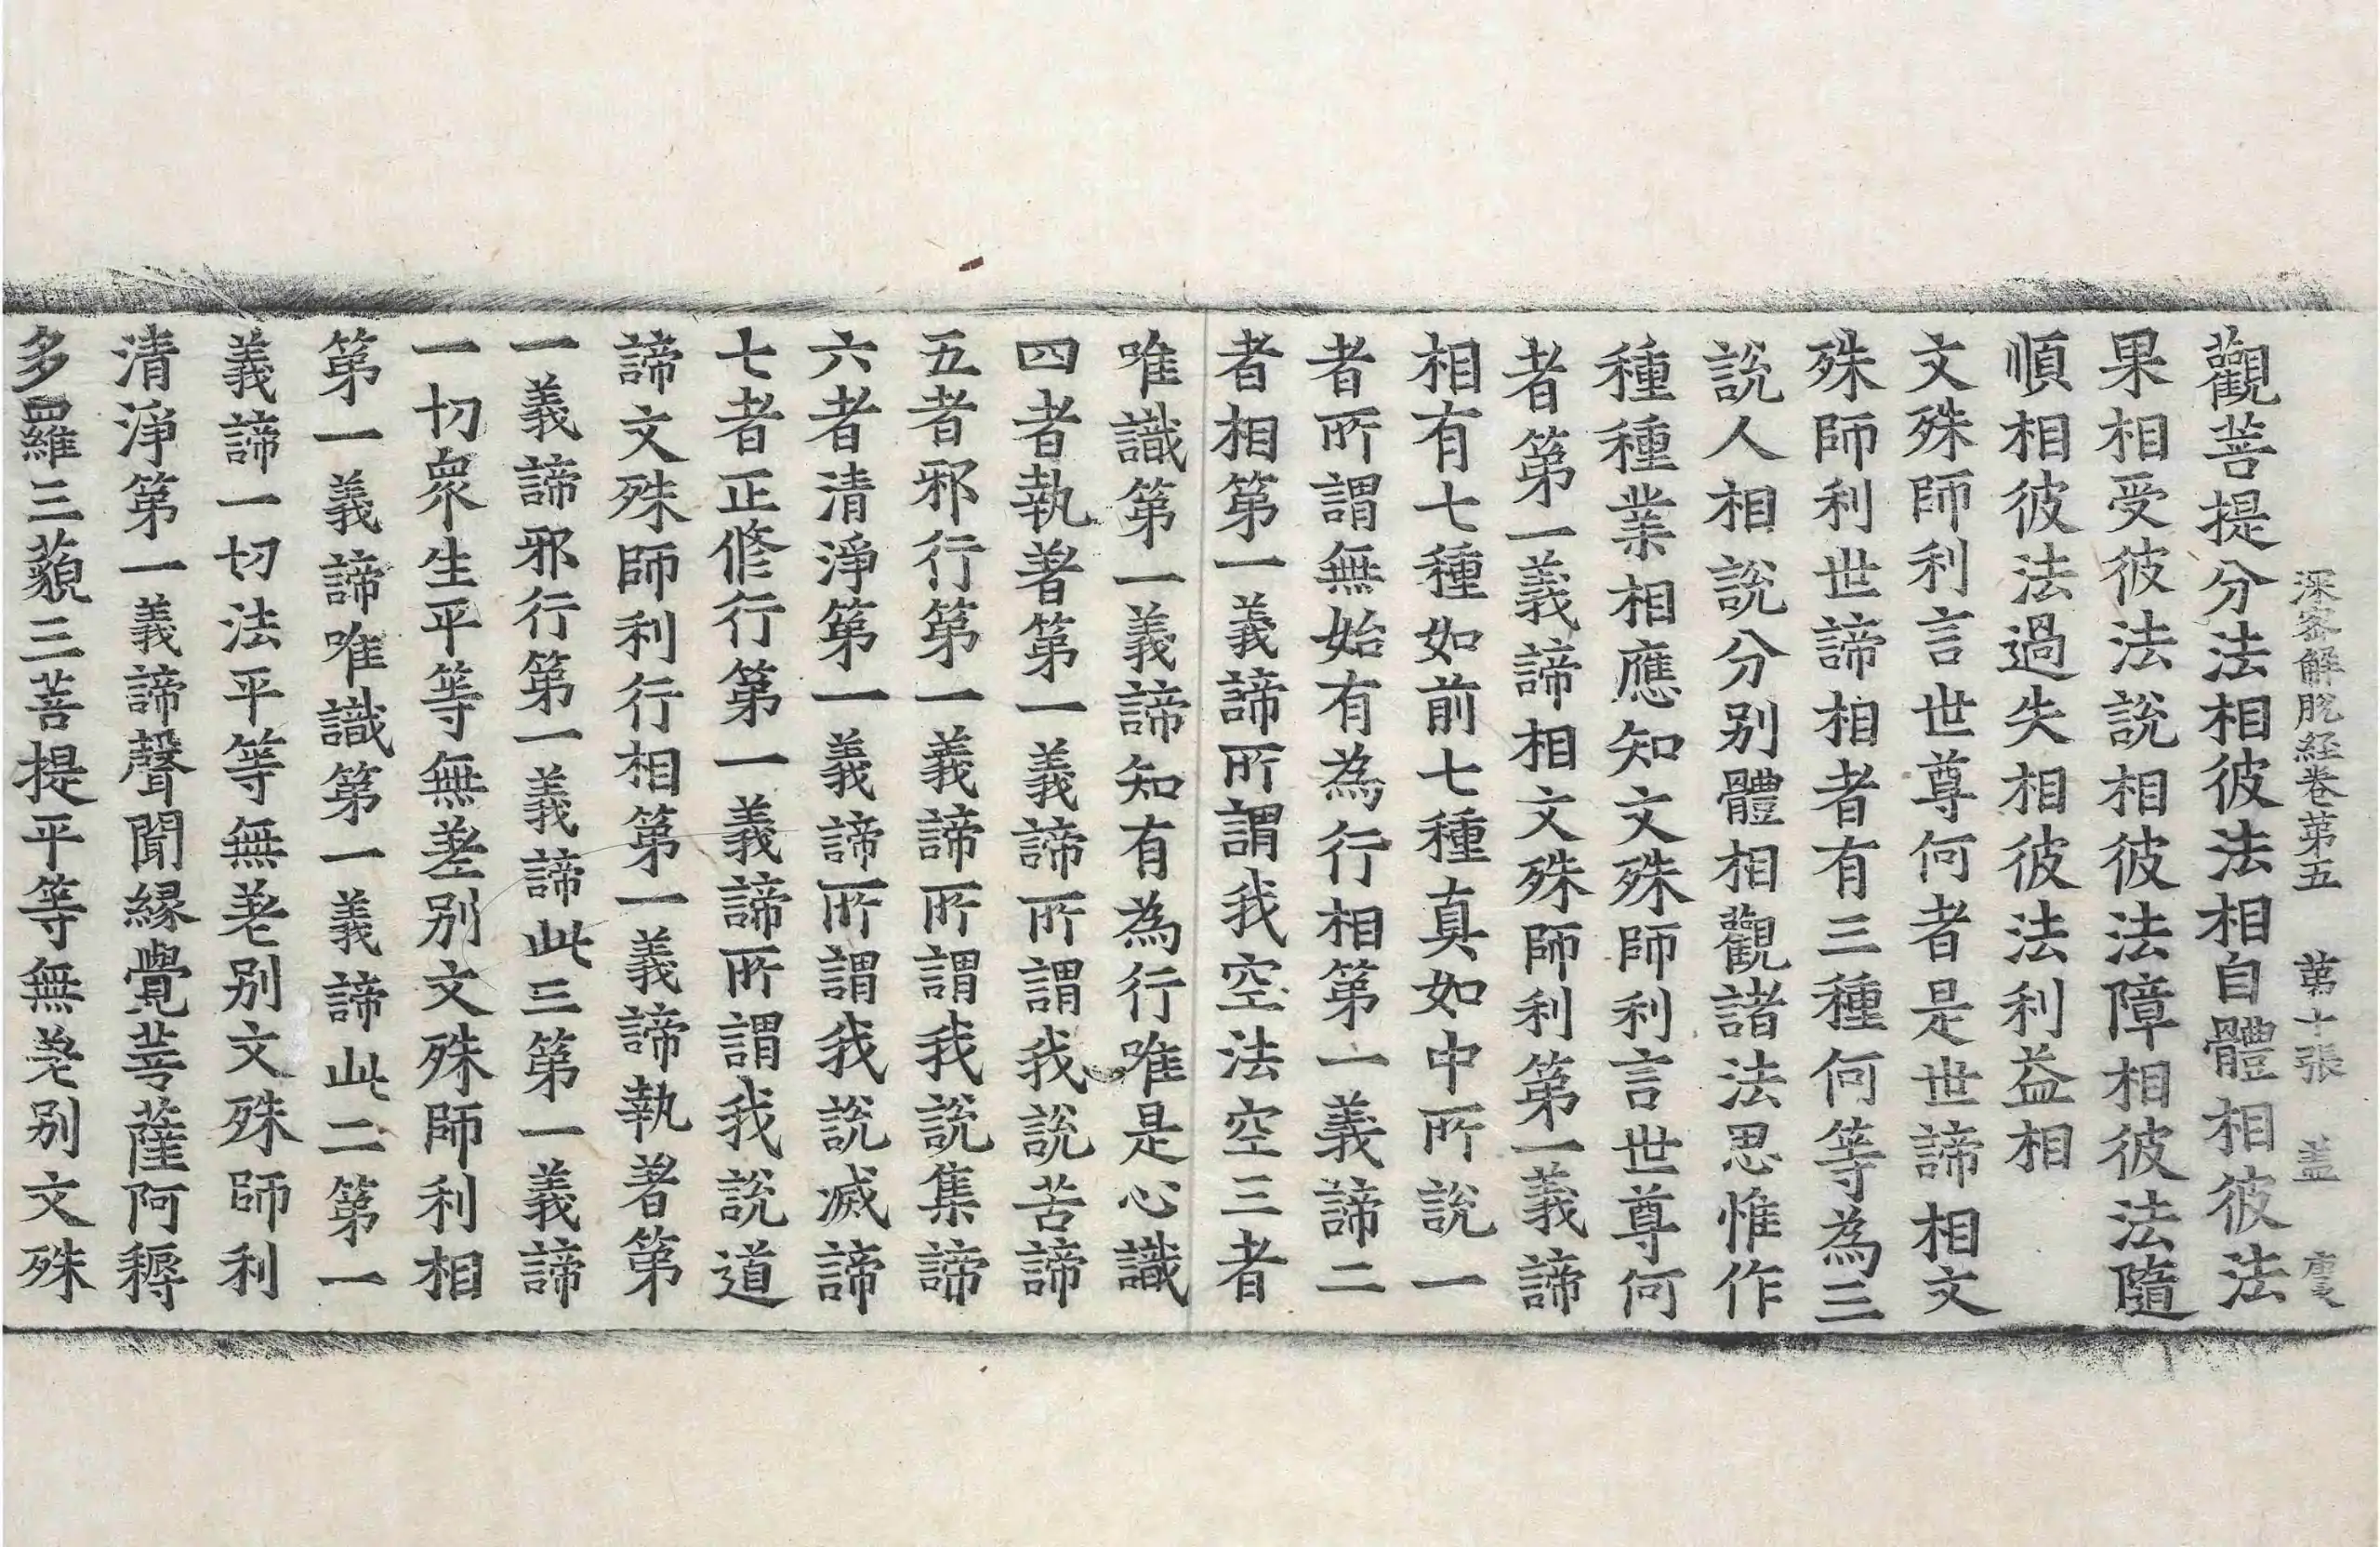 深密解脫經卷第五 第十張 盖
觀菩提分法相彼法相自體相彼法
果相受彼法說相彼法障相彼法隨
順相彼法過失相彼法利益相
文殊師利言世尊何者是世諦相文
殊師利世諦相者有三種何等為三
說人相說分別體相觀諸法思惟作
種種業相應知文殊師利言世尊何
者第一義諦相文殊師利第一義諦
相有七種如前七種真如中所說一
者所謂無始有為行相第一義諦二
者相第一義諦所謂我空法空三者
唯識第一義諦知有為行唯是心識
四者執著第一義諦所謂我說苦諦
五者邪行第一義諦所謂我說集諦
六者清淨第一義諦所謂我說滅諦
七者正修行第一義諦所謂我說道
諦文殊師利行相第一義諦執著第
一義諦邪行第一義諦此三第一義諦
一切衆生平等無差別文殊師利相
第一義諦唯識第一義諦此二第一
義諦一切法平等無差別文殊師利
清淨第一義諦聲聞緣覺菩薩阿耨
多羅三藐三菩提平等無差別文殊